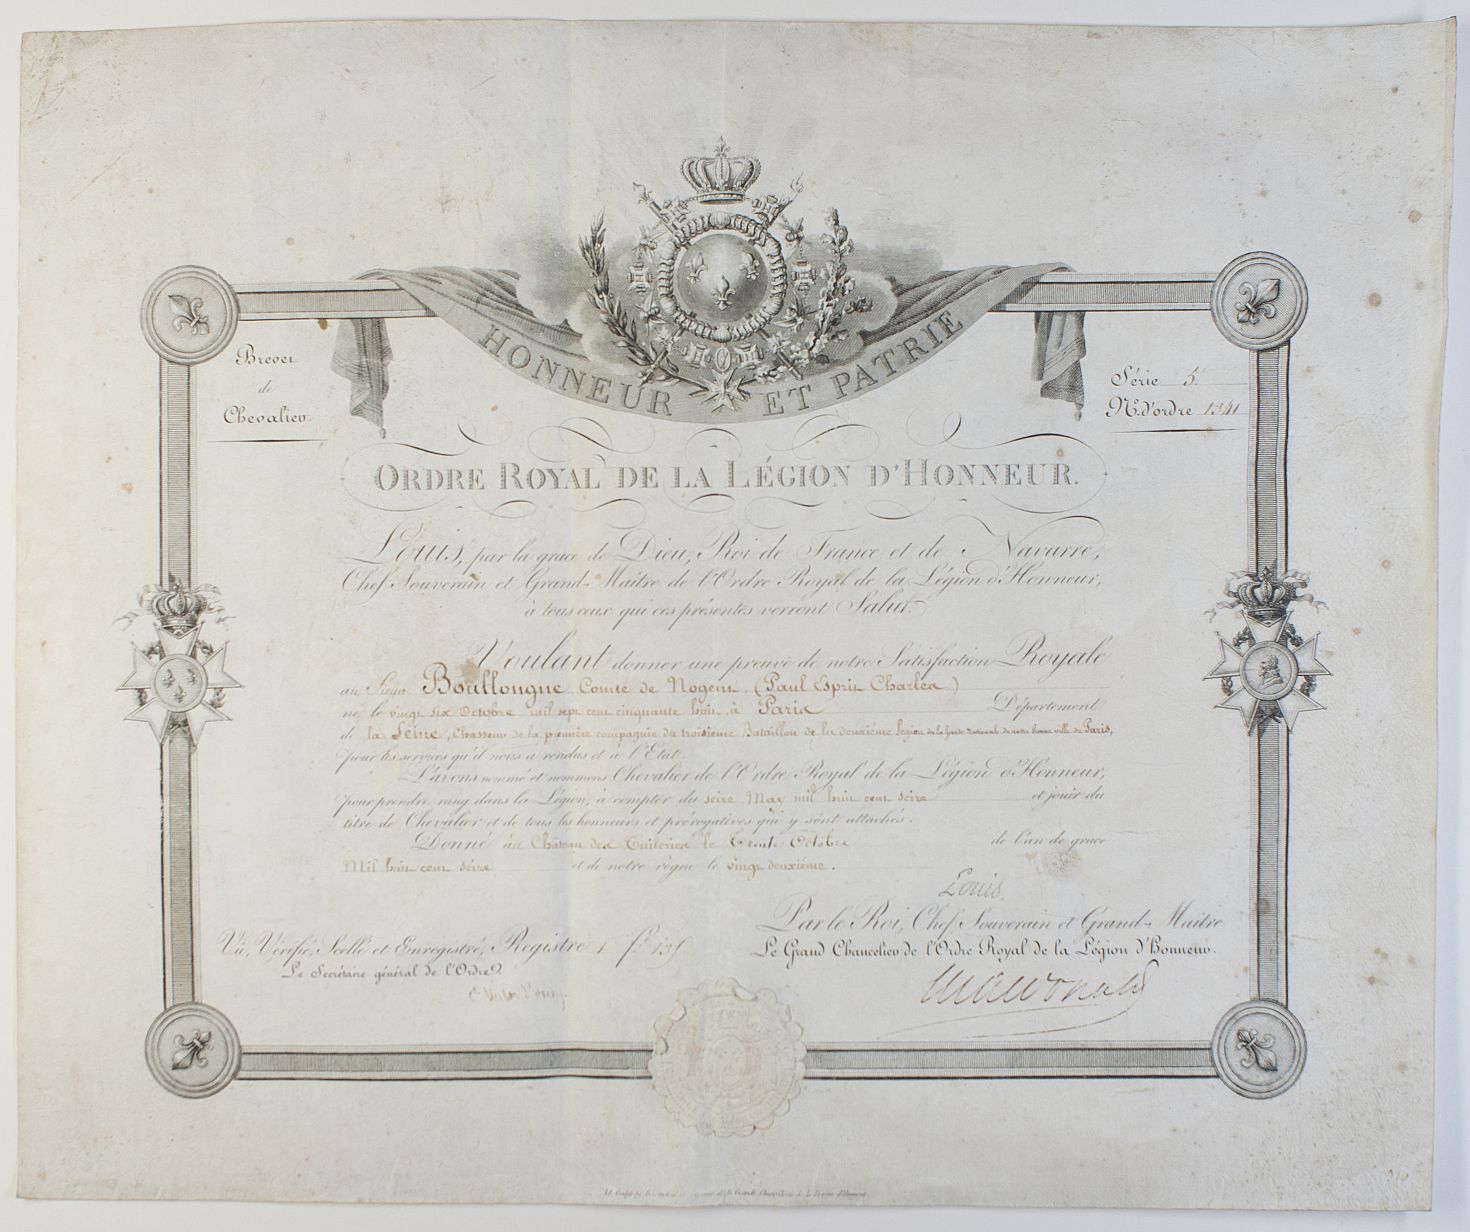 HONNEUR ET PATRIE
Brevet
de
Chevalier.
Série 5e
No. d'ordre 1341
ORDRE ROYAL DE LA LÉGION D'HONNEUR.
Louis, par la grace de Dieu, Roi de France et de Navarre,
Chef Souverain et Grand-Maître de l'Ordre Royal de la Légion d'Honneur,
à tous ceux qui ces présentes verront Salut.
Voulant donner une preuve de notre Satisfaction Royale
au Sieur Boullongne, Comte de Nogent (Paul Esprit Charles)
né le vingt six Octobre mil sept cent cinquante huit à Paris Département
de la Seine, Chasseur de la première compagnie du troisieme Bataillon de la deuxième légion de la Garde Nationale de notre bonne ville de Paris,
pour les services qu'il nous a rendus et à l'Etat.
L'avons nommé et nommons Chevalier de l'Ordre Royal de la Légion d'Honneur,
pour prendre rang dans la Légion, à compter du seize May mil huit cent seize et jouir du
titre de Chevalier et de tous les honneurs et prérogatives qui y sont attachés.
Donné au Château des Tuileries le trente Octobre de l'an de grace
Mil huit cent seize et de notre règne le vingt deuxième.
Louis
Par le Roi, Chef Souverain et Grand-Maître
Le Grand Chancelier de l'Ordre Royal de la Légion d'honneur.
Macdonald
Vu, Vérifié, Scellé et Enregistré, Registre 1 fo
Le Secrétaire général de l'Ordre